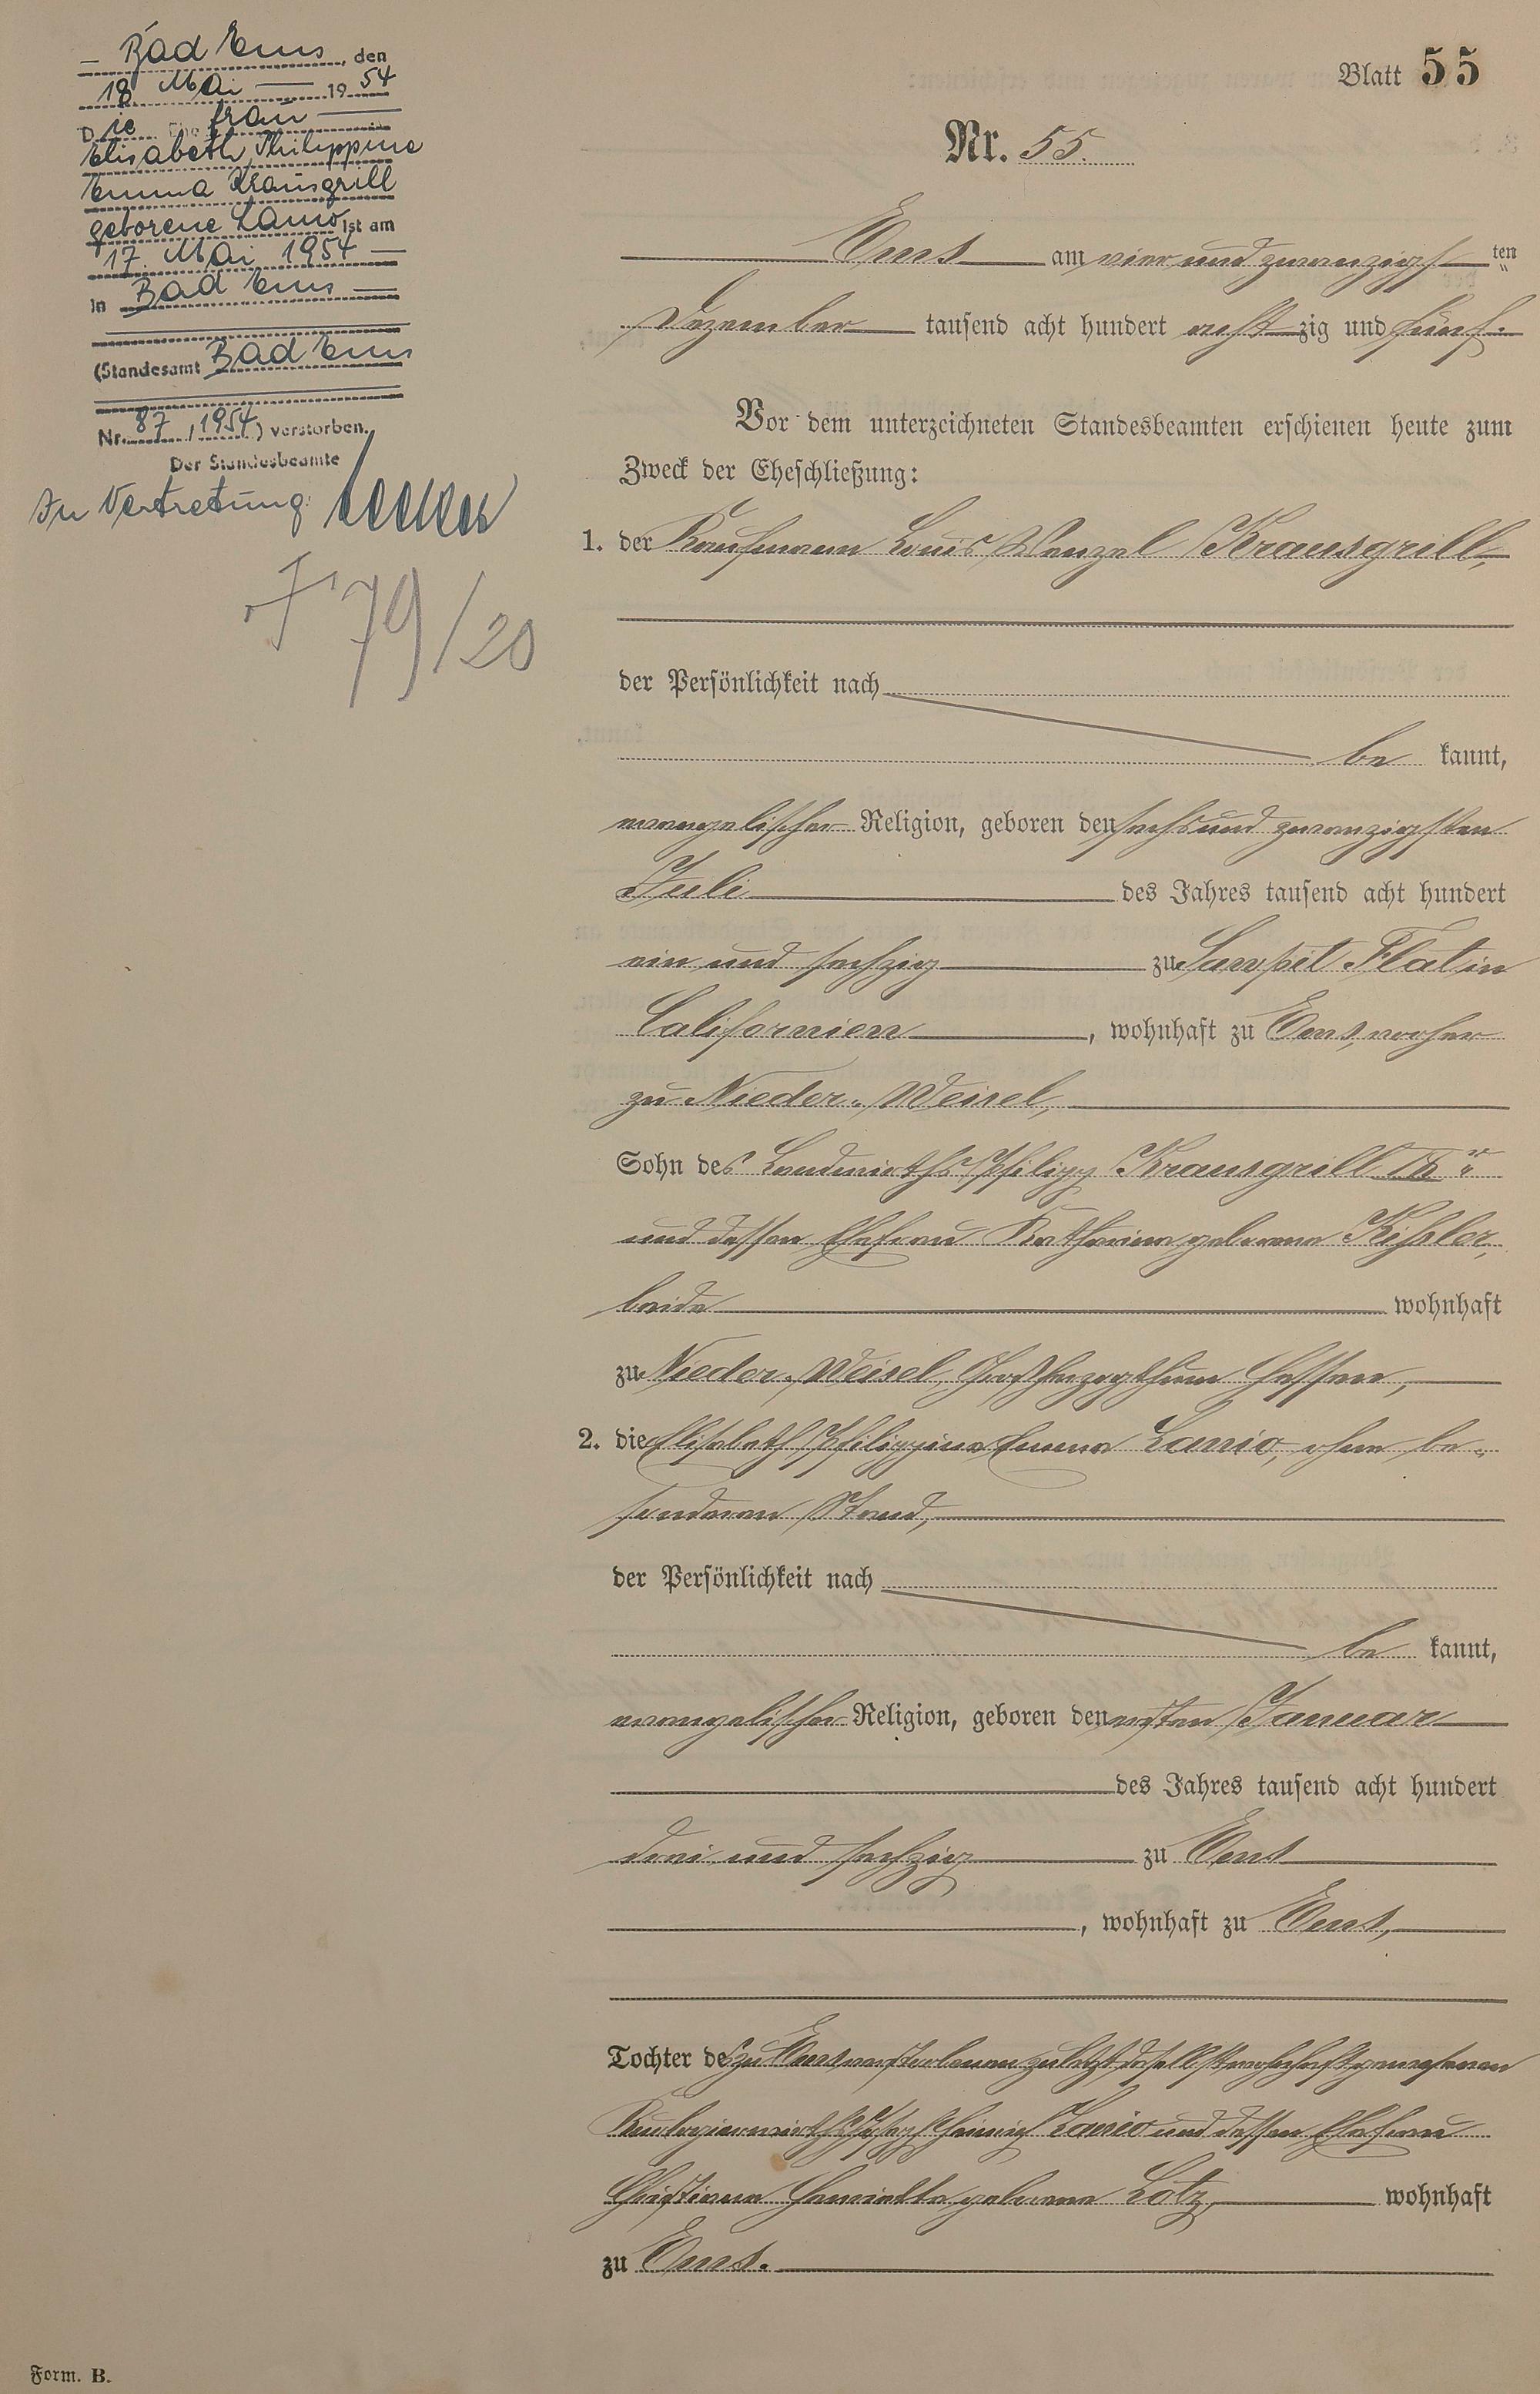 – Bad Ems, den
18. Mai — 1954
Die Ehefrau —
Elisabeth Philippine
Emma Krausgrill
geborene Lanio ist am
17. Mai 1954 —
in Bad Ems —
(Standesamt Bad Ems
Nr. 87/1954) verstorben.
Der Standesbeamte
In Vertretung:
† 79/20
Blatt 55
Nr. 55.
Ems am vier und zwanzigsten
Dezember tausend acht hundert achtzig und fünf.
Vor dem unterzeichneten Standesbeamten erschienen heute zum
Zweck der Eheschließung:
1. der Kaufmann Louis Wenzel Krausgrill,
der Persönlichkeit nach
bekannt,
evangelischer Religion, geboren den sechs und zwanzigsten
Juli des Jahres tausend acht hundert
ein und sechzig zu Sawpit Flat in
Californien, wohnhaft zu Ems, vorher
zu Nieder-Weisel,
Sohn des Landwirths Philipp Krausgrill
und dessen Ehefrau Katharina geborene Kissler,
beide wohnhaft
zu Nieder-Weisel, Großherzogthum Hessen,
2. die Elisabeth Philippina Emma Lanio, ohne be-
sonderen Stand,
der Persönlichkeit nach
bekannt,
evangelischer Religion, geboren den ersten Januar
des Jahres tausend acht hundert
drei und sechzig zu Ems
, wohnhaft zu Ems,
Tochter des zu Ems verstorbenen zuletzt daselbst wohnhaft gewesenen
Kurlogierwirths Joseph Heinrich Lanio und dessen Ehefrau
Christiane Henriette geborene Lotz, wohnhaft
zu Ems.
Form. B.